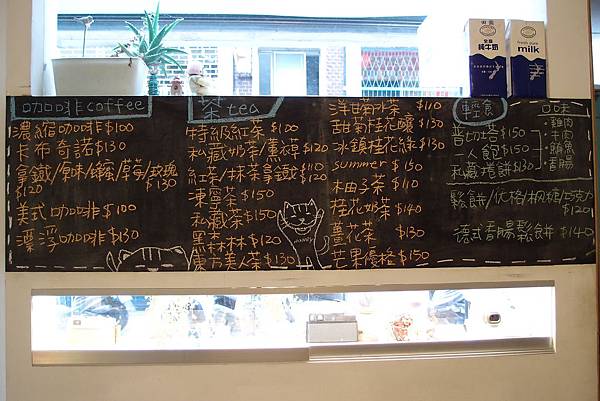 咖啡coffee
濃縮咖啡$100
卡布奇諾$130
拿鐵/原味/蜂蜜/草莓/玫瑰
$120 $130
美式咖啡$100
漂浮咖啡$130
茶tea
特級紅茶$120
私藏奶茶/薰衣草$120
紅茶/抹茶拿鐵$110
凍寧茶$150
私藏茶$150
黑森林茶$120
東方美人茶$130
洋甘菊冰茶$110
甜菊桂花釀$130
冰鎮桂花綠$130
summer $150
柚子茶$110
桂花奶茶$140
薑花茶 $130
芒果優格$150
輕食
普切塔$150
一人飽$150
私藏捲餅$130
口味
雞肉
牛肉
鮪魚
香腸
鬆餅/优格/枫糖/巧克力
$120
德式香腸鬆餅$140
全脂
純牛奶
fresh pure
milk